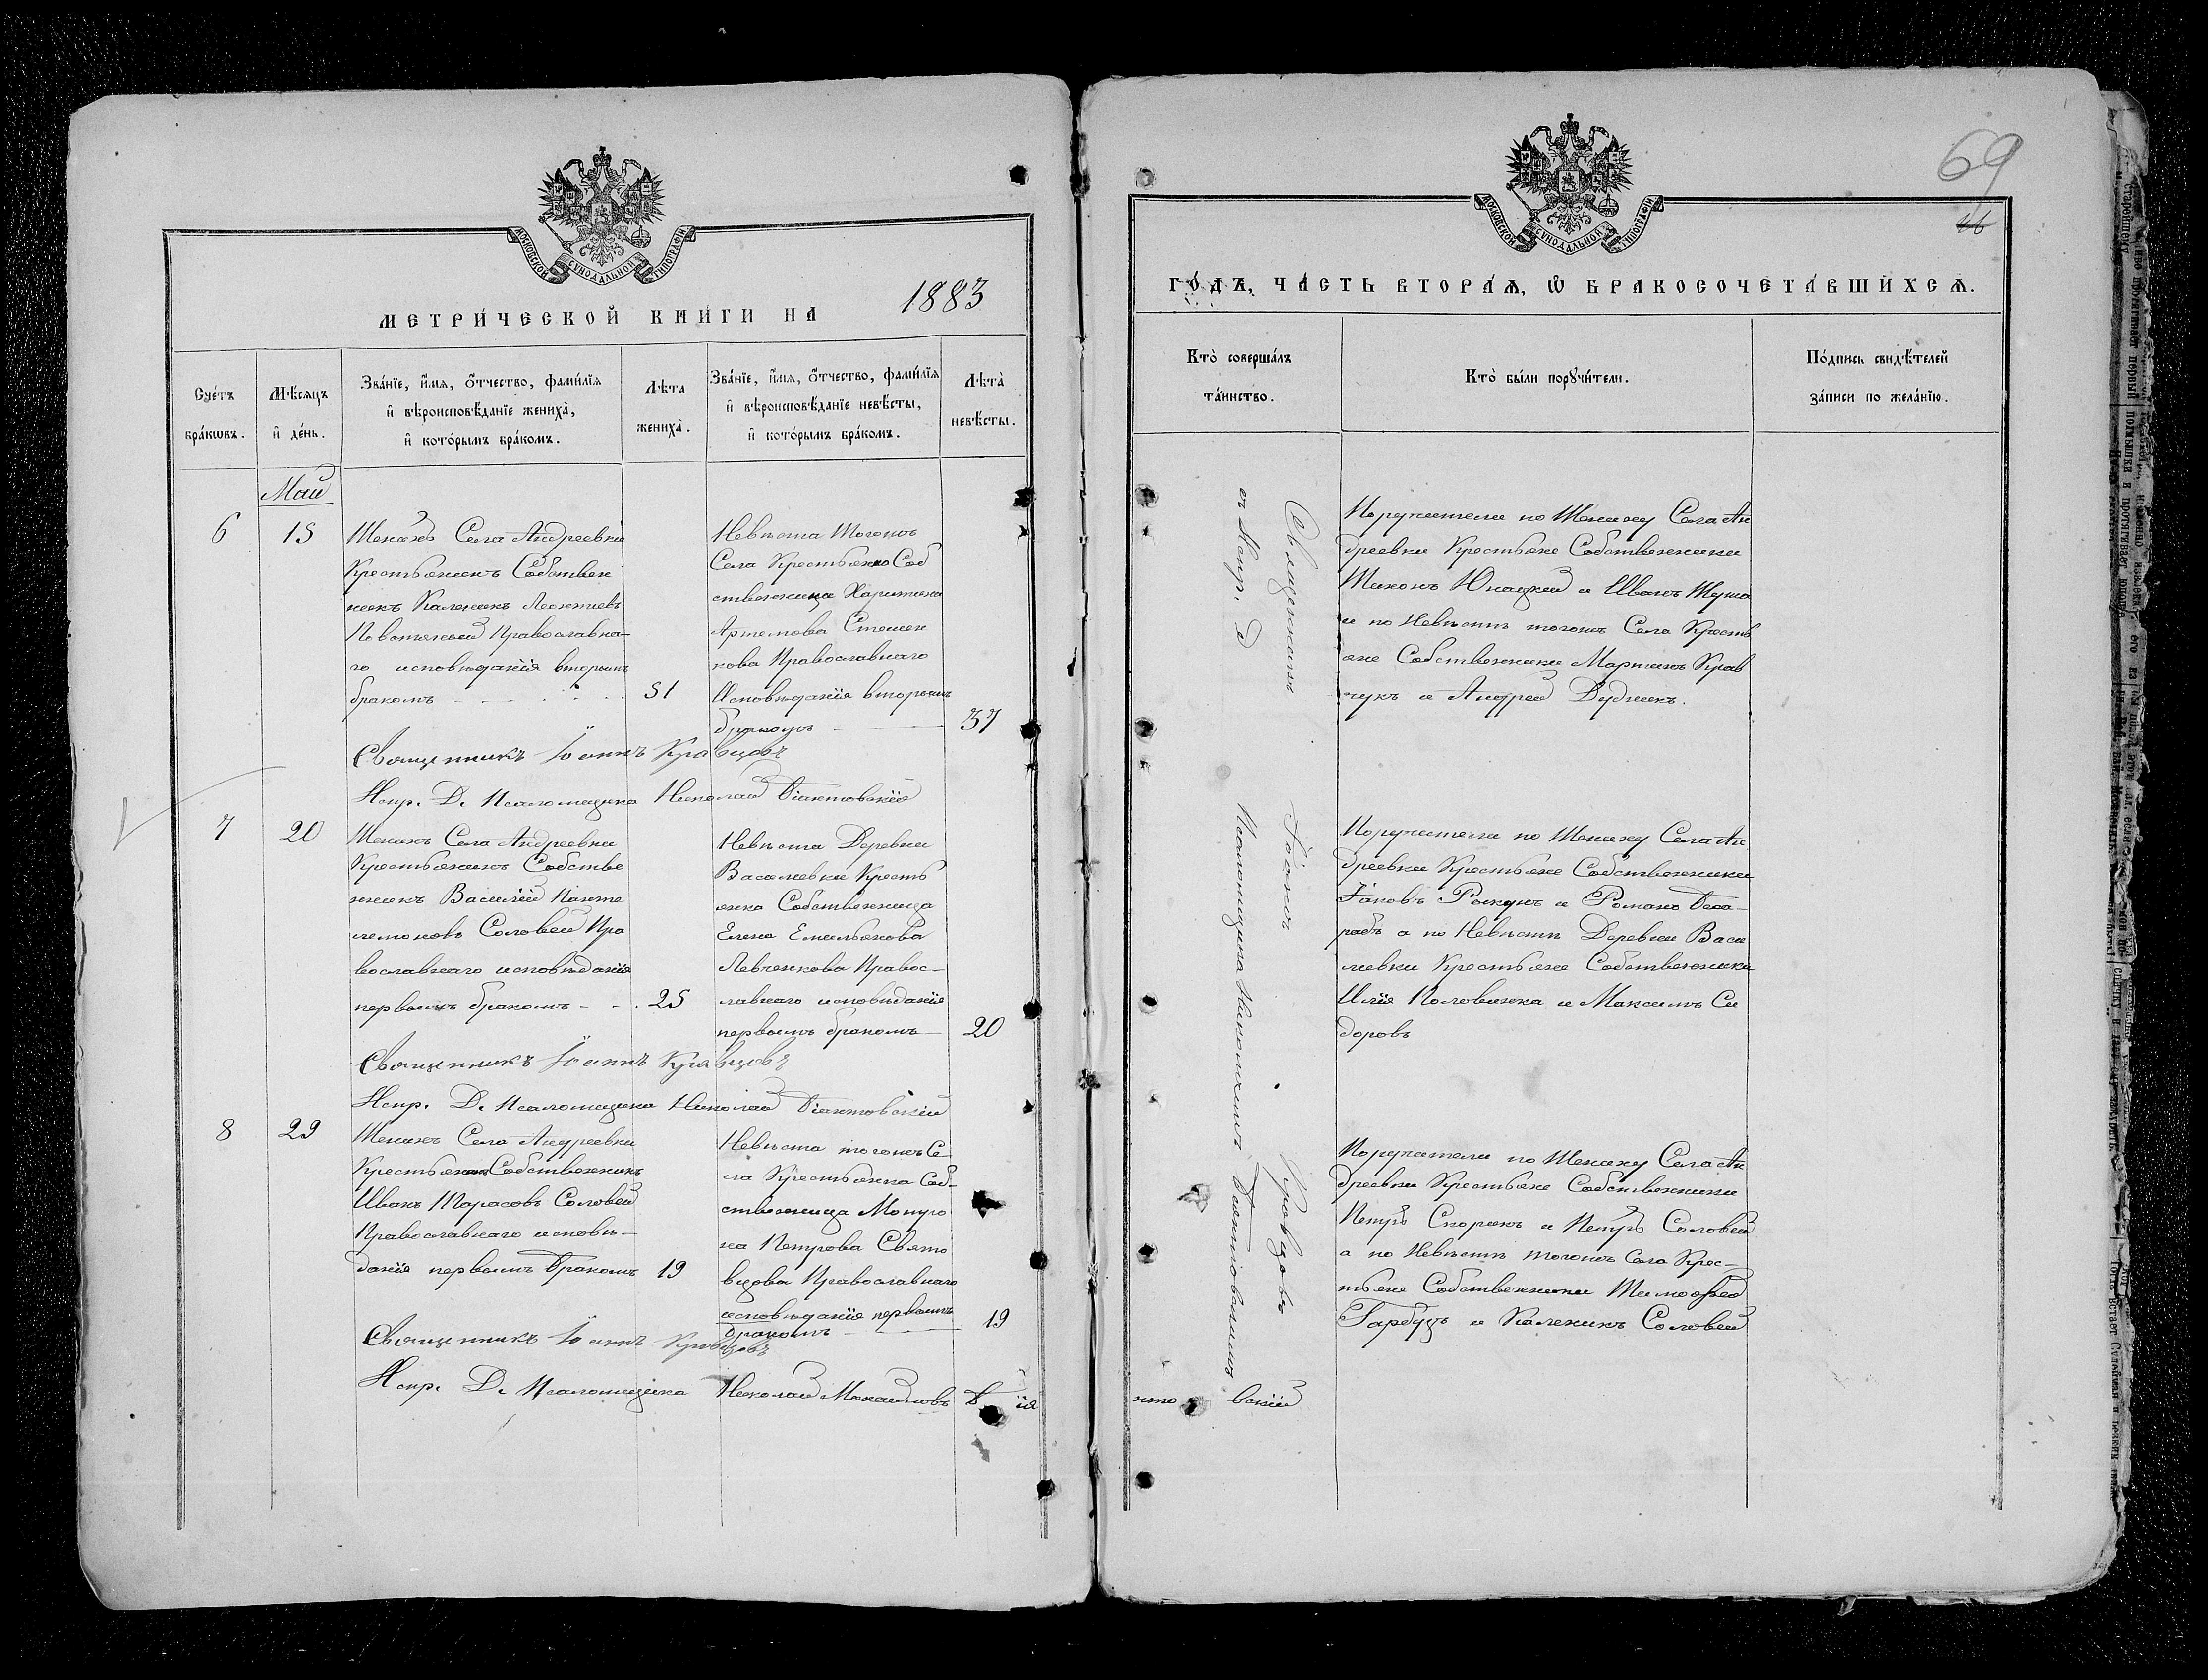 МОСКОВСКОЙ СѴНОДАЛЬНОЙ ТИПОГРАФІИ
МЕТРИ́ЧЕСКОЙ КНИ́ГИ НА 1883
Сче́тъ бра́кѡвъ.
Мѣ́сяцъ и҆ де́нь.
Зва́нїе, и҆́мя, ѻ҆́тчество, фами́лїя
и҆ вѣроисповѣ́данїе жениха̀,
и҆ кото́рымъ бра́комъ.
Лѣ́та жениха̀.
Зва́нїе, и҆́мя, ѻ҆́тчество, фами́лїя
и҆ вѣроисповѣ́данїе невѣ́сты,
и҆ кото́рымъ бра́комъ.
Лѣ́та невѣ́сты.
Май
6
15
Женихъ Села Андреевки
Крестьянинъ Собствен
никъ Каленикъ Леонтиевъ
Православна-
го исповѣданія вторымъ
бракомъ
51
Невѣста тогожъ
Села Крестьянка Соб
ственница Харитина
Артемова Стешен
кова Православнаго
Исповѣданія вторымъ
бракомъ
37
Священникъ Іоаннъ Кравцовъ
Испр. Д. Псаломщика Николай
7
20
Женихъ Села Андреевки
Крестьянинъ Собстве
нникъ Василій Панте
лемоновъ Соловей Пра
вославнаго исповѣданія
первымъ бракомъ
25
Невѣста Деревни
Василевки Кресть
янка Собственница
Елена Емельянова
Левченкова Правос-
лавнаго исповѣданія
первымъ бракомъ
20
Священникъ Іоаннъ Кравцовъ
Испр. Д. Псаломщика Николай
8
29
Женихъ Села Андреевки
Крестьянинъ Собственникъ
Иванъ Тарасовъ Соловей
Православнаго исповѣ-
данія первымъ бракомъ
19
Невѣста тогожъ Се-
ла Крестьянка Соб-
ственница
Петрова Свято
вцова Православнаго
исповѣданія первымъ
бракомъ
19
Священникъ Іоаннъ Кравцовъ
Испр. Д. Псаломщика Николай
МОСКОВСКОЙ СѴНОДАЛЬНОЙ ТИПОГРАФІИ
69
ГО́ДЪ, ЧА́СТЬ ВТОРА́Я, Ѡ҆ БРАКОСОЧЕТА́ВШИХСЯ.
Кто̀ соверша́лъ
та́инство.
Кто̀ бы́ли порꙋчи́тели.
По́дпись свидѣ́телей
за́писи по жела́нїю.
Священникъ Іоаннъ Кравцовъ
съ Испр. Д. Псаломщика Николаемъ
Поручители по Жениху Села Ан
дреевки Крестьяне Собственники
Тихонъ Юнацкій и Иванъ
и по Невѣстѣ тогожъ Села Кресть
яне Собственники Мартинъ Крав
чукъ и Андрей Дудникъ.
Поручители по Жениху Села Ан
дреевки Крестьяне Собственники
Іаковъ и Романъ
а по Невѣстѣ Деревни Васи
левки Крестьяне Собственники
Илія Половинка и Максимъ Си
доровъ
Поручители по Жениху Села Ан
дреевки Крестьяне Собственники
Петръ Скорикъ и Петръ Соловей
а по Невѣстѣ тогожъ Села Крес-
тьяне Собственники Тимофей
Гарбузъ и Каленикъ Соловей